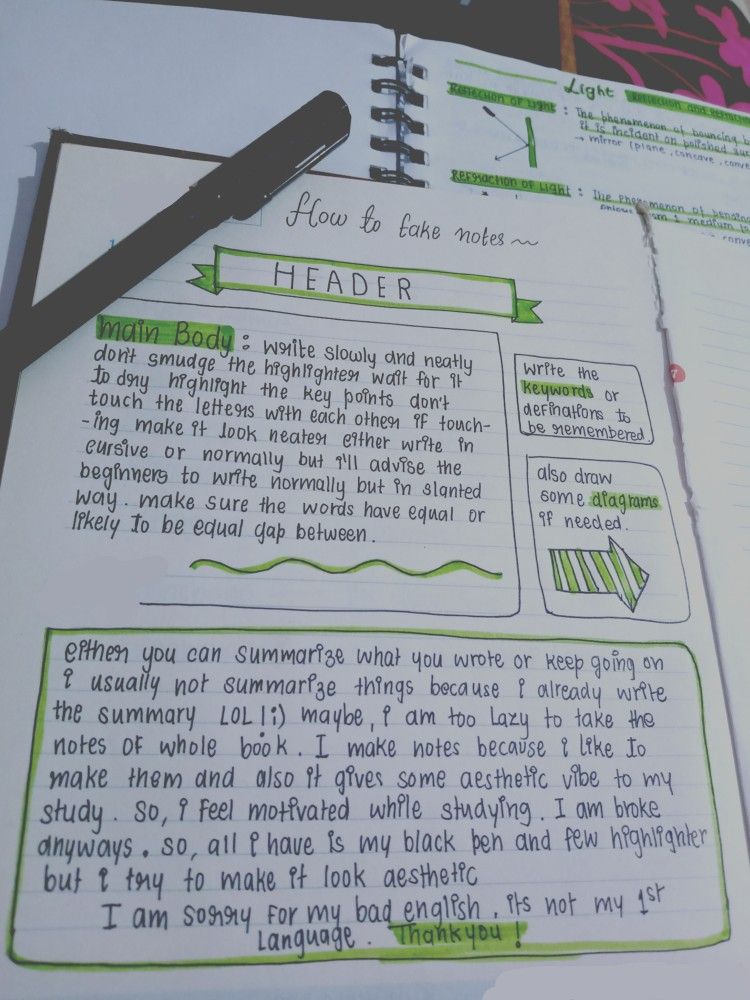 Light
Reflection of Light : The phenomenon of bouncing
it is incident on polished
→ mirror (plane, concave,
Refraction of Light : The phenomenon of
medium
How to take notes~
HEADER
main Body : write slowly and neatly
don't smudge the highlighter wait for it
to dry highlight the key points don't
touch the letters with each other if touch-
-ing make it look neater either write in
cursive or normally but i'll advise the
beginners to write normally but in slanted
way. make sure the words have equal or
likely to be equal gap between.
write the
keywords or
definations to
be remembered
also draw
some diagrams
if needed.
either you can summarize what you wrote or keep going on
i usually not summarize things because i already write
the summary LOL |;) maybe, i am too lazy to take the
notes of whole book. I make notes because i like to
make them and also it gives some aesthetic vibe to my
study. So, i feel motivated while studying. I am broke
anyways. so, all i have is my black pen and few highlighter
but i try to make it look aesthetic
I am sorry for my bad english. its not my 1st
Language. Thankyou!